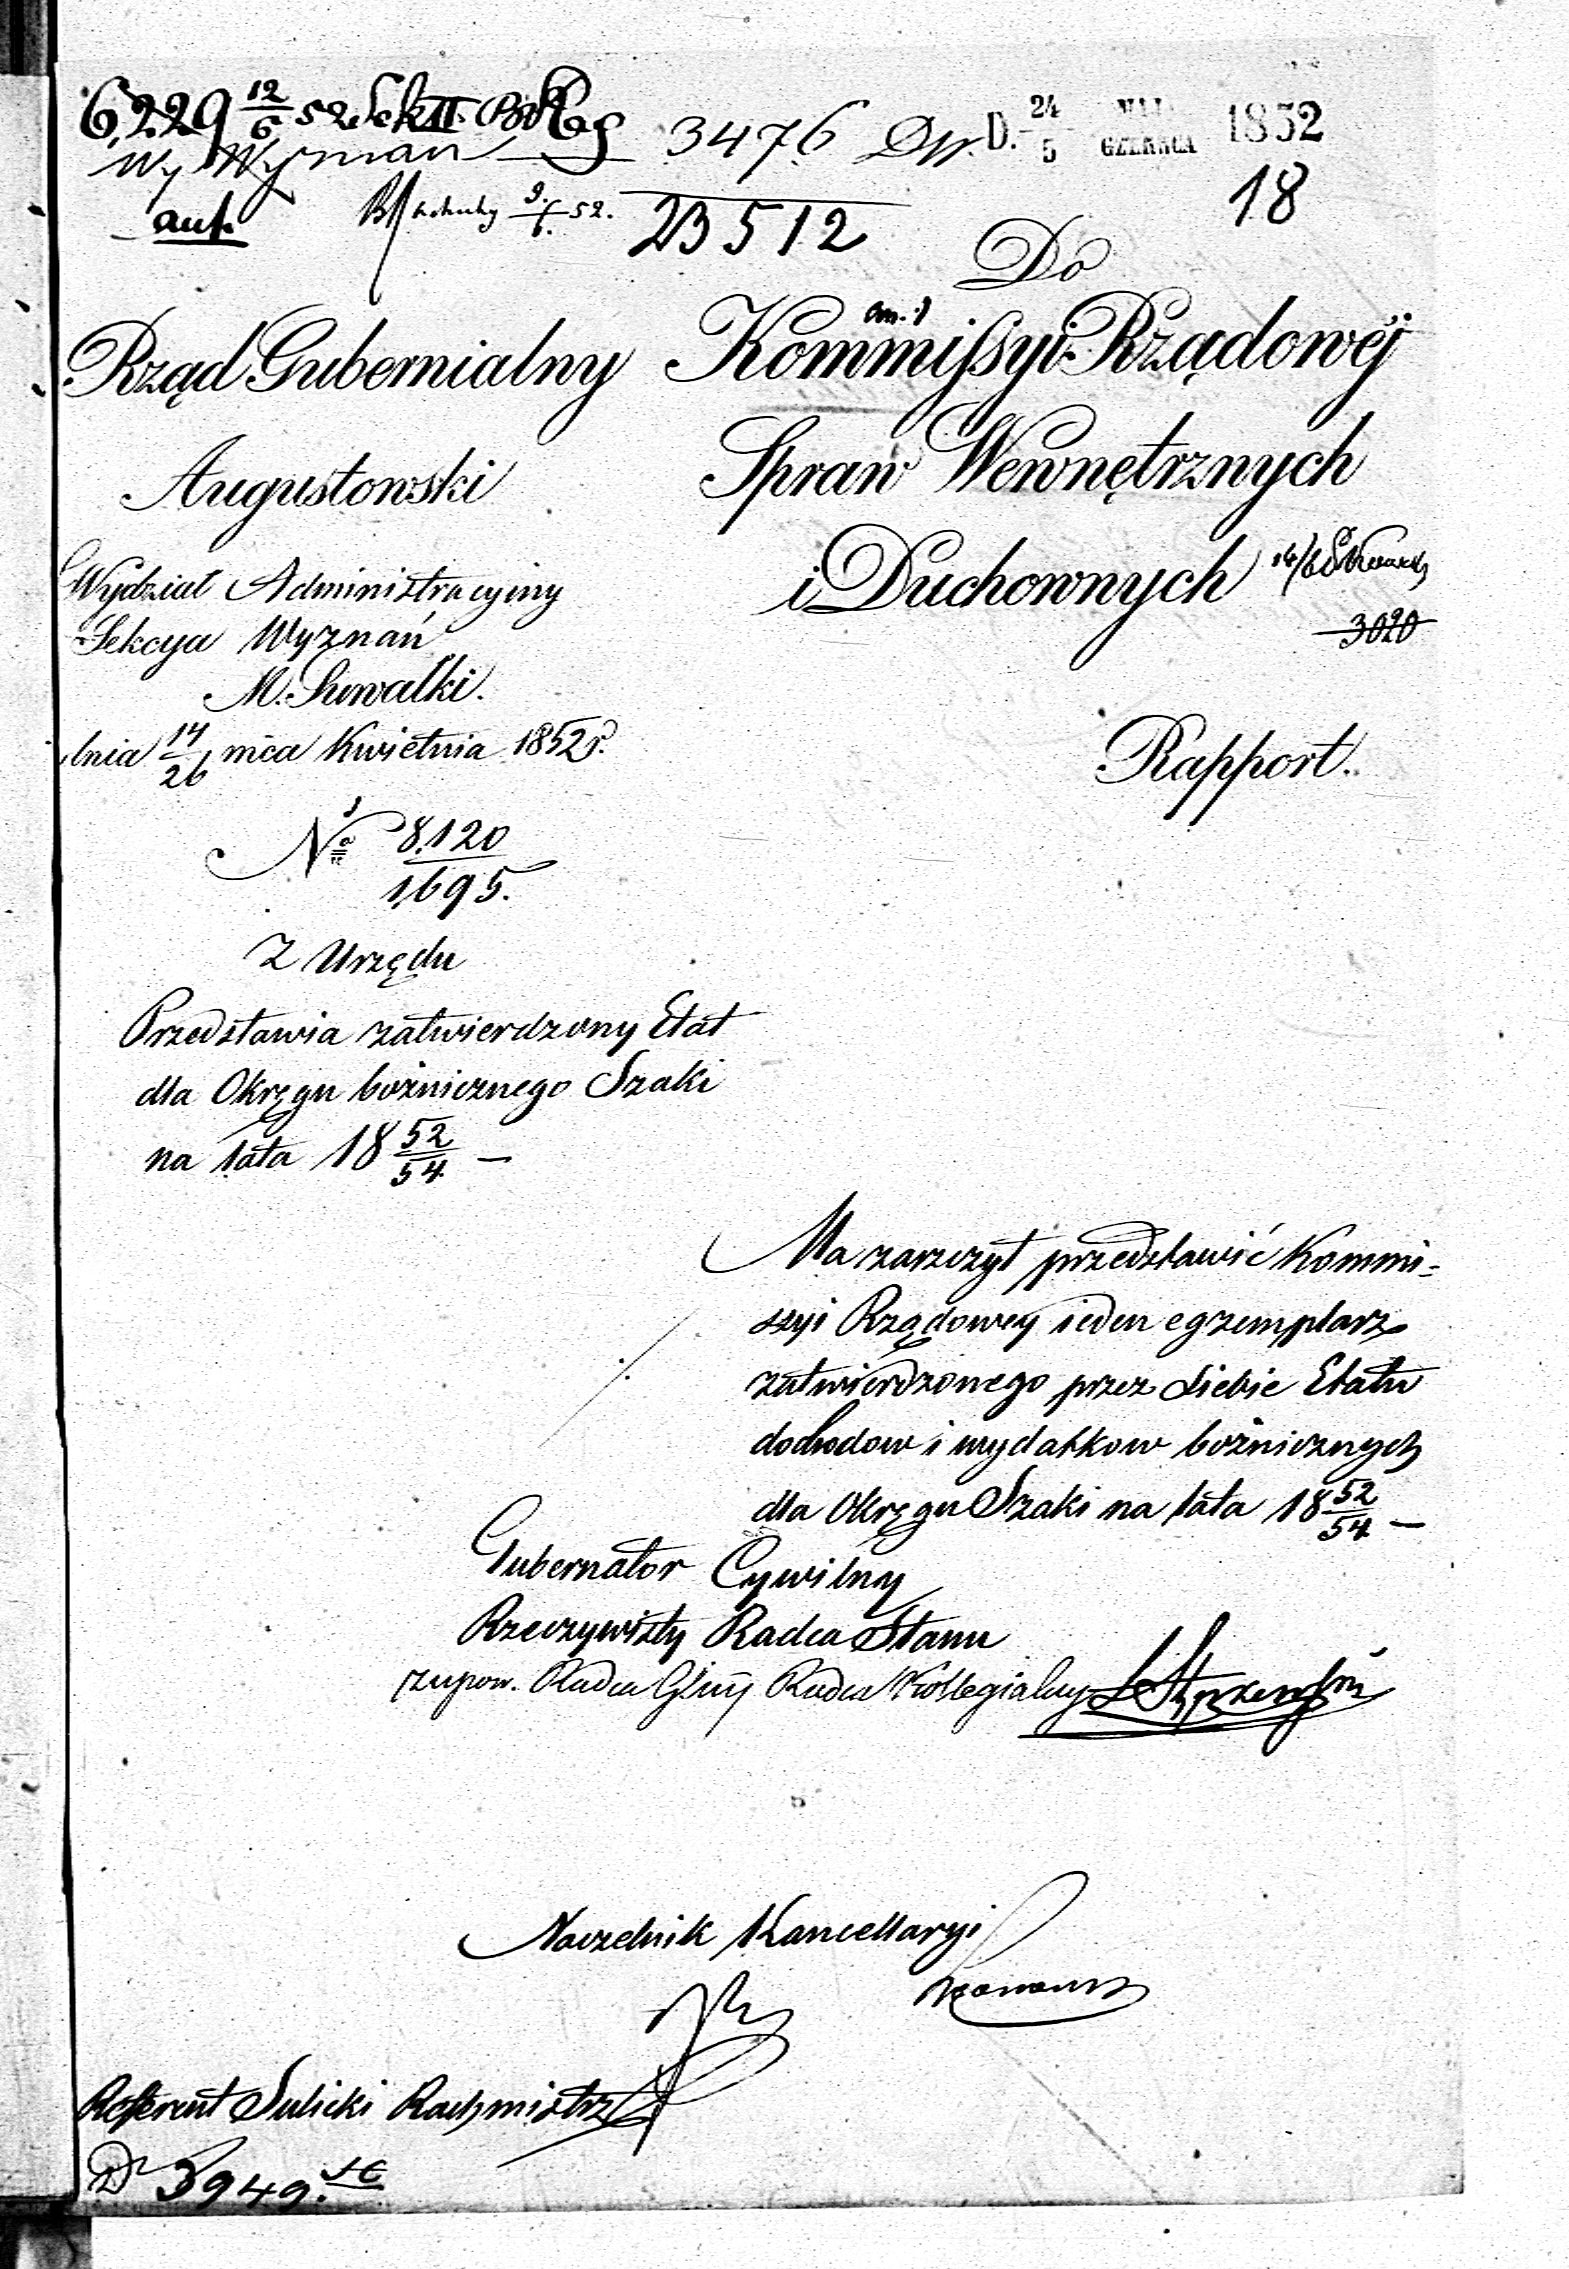 6229 12/6 52 Sek II
Wy Wyznań 3476 Dyr. D. 24/5 MAJA CZERWCA 1852
auf. 9/6 52. 23512 18
Do
Rząd Gubernialny
Augustowski
Wydział Administracyiny
Sekcya Wyznań
M. Suwałki.
dnia 14/26 mca Kwietnia 1852 r.
No 8120/1695.
Z Urzędu
Przedstawia zatwierdzony Etat
dla Okręgu bożnicznego Szaki
na lata 18 52/54 —
Kommissyi Rządowéj
Spraw Wewnętrznych
i Duchownych
3020
Rapport.
Ma zaszczyt przedstawić Kommi-
ssyi Rządowey ieden egzemplarz
zatwierdzonego przez Siebie Etatu
dochodow i wydatkow bożnicznych
dla Okręgu Szaki na lata 18 52/54 —
Gubernator Cywilny
Rzeczywisty Radca Stanu
z upow. Radca Gbny Radca Kollegialny
Naczelnik Kancellaryi
Referent Sulicki Rachmistrz
D 3949.